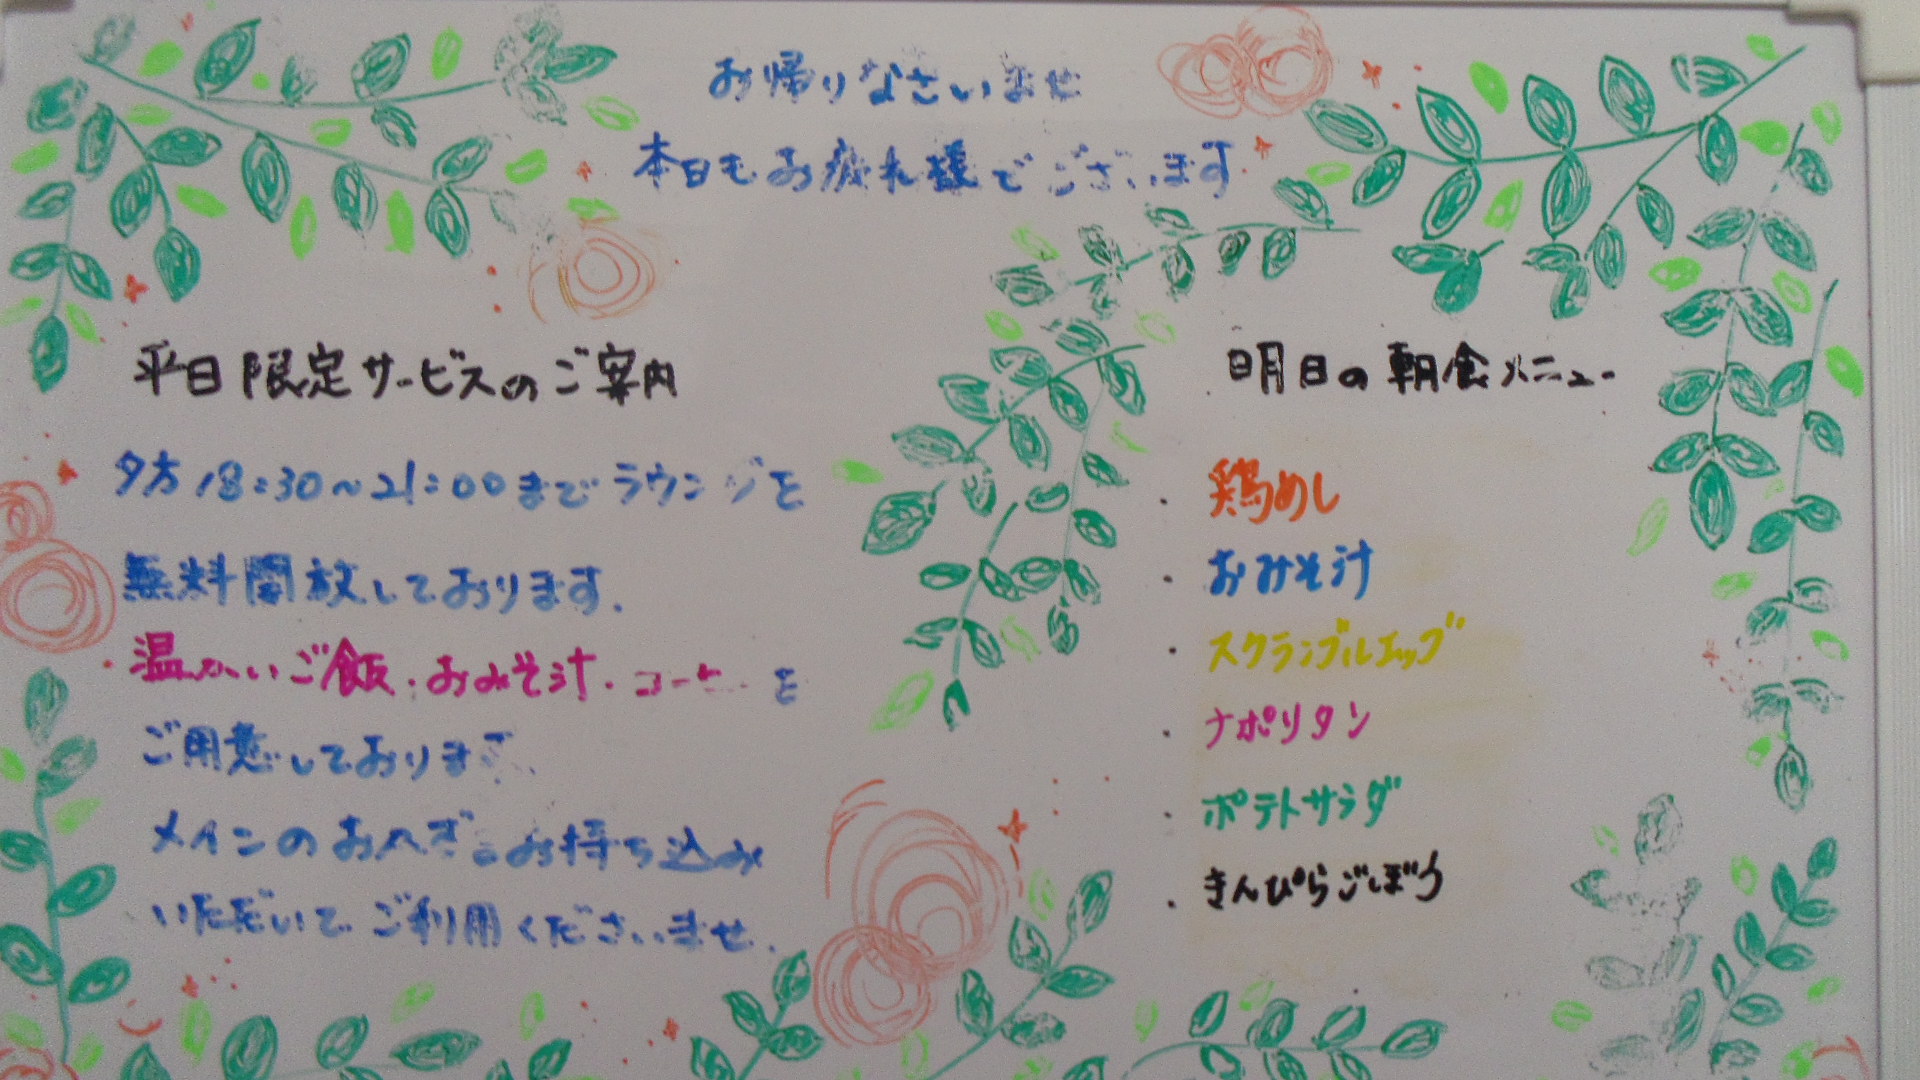 お帰りなさいませ
本日もお疲れ様でございます
平日限定サービスのご案内
夕方18:30〜21:00までラウンジを
無料開放しております.
温かいご飯・おみそ汁・コーヒーを
ご用意しております.
メインのおかずをお持ち込み
いただいてご利用くださいませ.
明日の朝食メニュー
・鶏めし
・おみそ汁
・スクランブルエッグ
・ナポリタン
・ポテトサラダ
・きんぴらごぼう